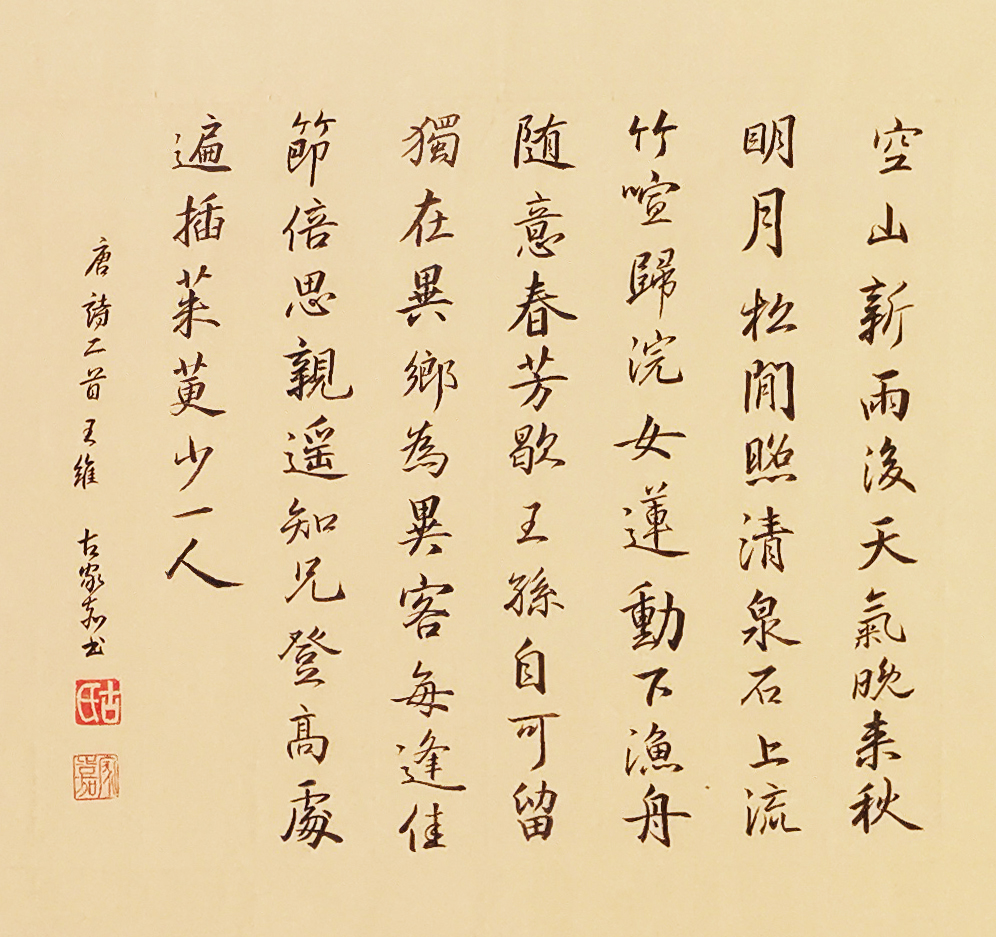 空山新雨後天氣晚来秋
明月松間照清泉石上流
竹喧歸浣女蓮動下漁舟
随意春芳歇王孫自可留
獨在異鄉為異客每逢佳
節倍思親遥知兄登高處
遍插茱萸少一人
唐詩二首王維 古家嘉书
古氏
家嘉